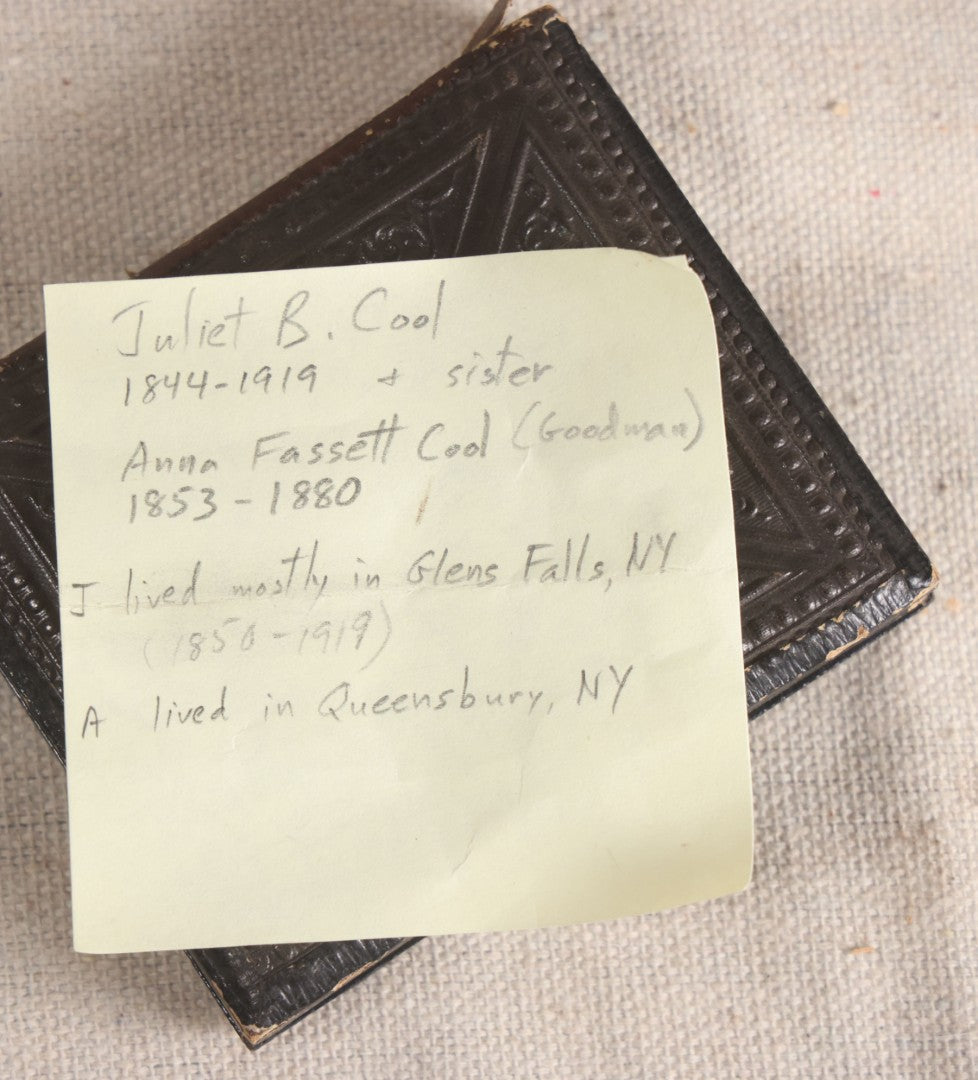 Juliet B. Cool
1844-1919 + sister
Anna Fassett Cool (Goodman)
1853-1880
J lived mostly in Glens Falls, NY
(1850-1919)
A lived in Queensbury, NY